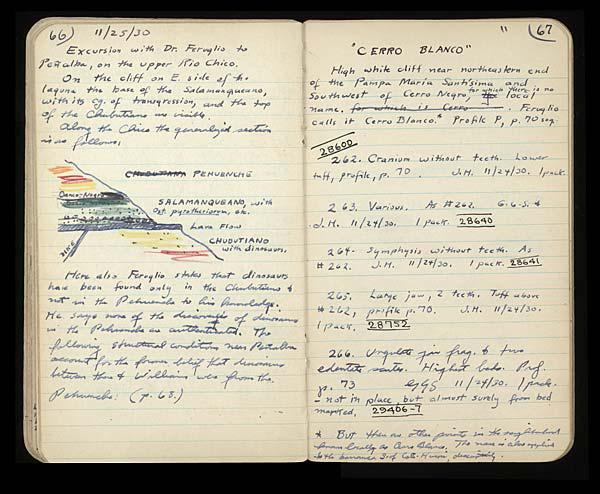 66) 11/25/30
Excursion with Dr. Feruglio to
Petralba, on the upper Rio Chico.
On the cliff on E. side of the
laguna the base of the Salamanqueano,
with its cg. of transgression, and the top
of the Chubutiano are visible.
Along the Chico the generalized section
is as follows:
CHUBUTIANO PEHUENCHE
Banco Negro
SALAMANQUEANO, with
Ost. pyrotheriorum, etc.
LAVA FLOW
CHUBUTIANO
with dinosaurs.
DIKE
Here also Feruglio states that dinosaurs
have been found only in the Chubutiano &
not in the Pehuenche to his knowledge.
He says none of the discoveries of dinosaurs
in the Pehuenche are authenticated. The
following structural conditions near Petralba
account for the former belief that dinosaurs
between there & Williams were from the
Pehuenche: (p. 68.)
" 67
"CERRO BLANCO"
High white cliff near northeastern end
of the Pampa Maria Santisima and
for which there is no
Southwest of Cerro Negro, local
name. for which is Cerro Feruglio
calls it Cerro Blanco.* Profile P, p. 70 seq.
28600
262. Cranium without teeth. Lower
tuff, profile, p. 70 J.H. 11/24/30. 1 pack.
263. Various. As #262. G.G.S. &
J.H. 11/24/30. 1 pack 28640
264- Symphysis without teeth. As
#262. J.H. 11/24/30. 1 pack. 28641
265. Large jaw, 2 teeth. Tuff above
#262, profile p. 70. J.H. 11/24/30.
1 pack. 28752
266. Ungulate jaw frag. & two
edentate scutes. Highest beds. Prof.
p. 73 GGS 11/24/30. 1 pack.
- not in place, but almost surely from bed
marked, 29406-7
* But there are other points in the neighborhood
known locally as Cerro Blanco. The name is also applied
to the barranca S of Col.